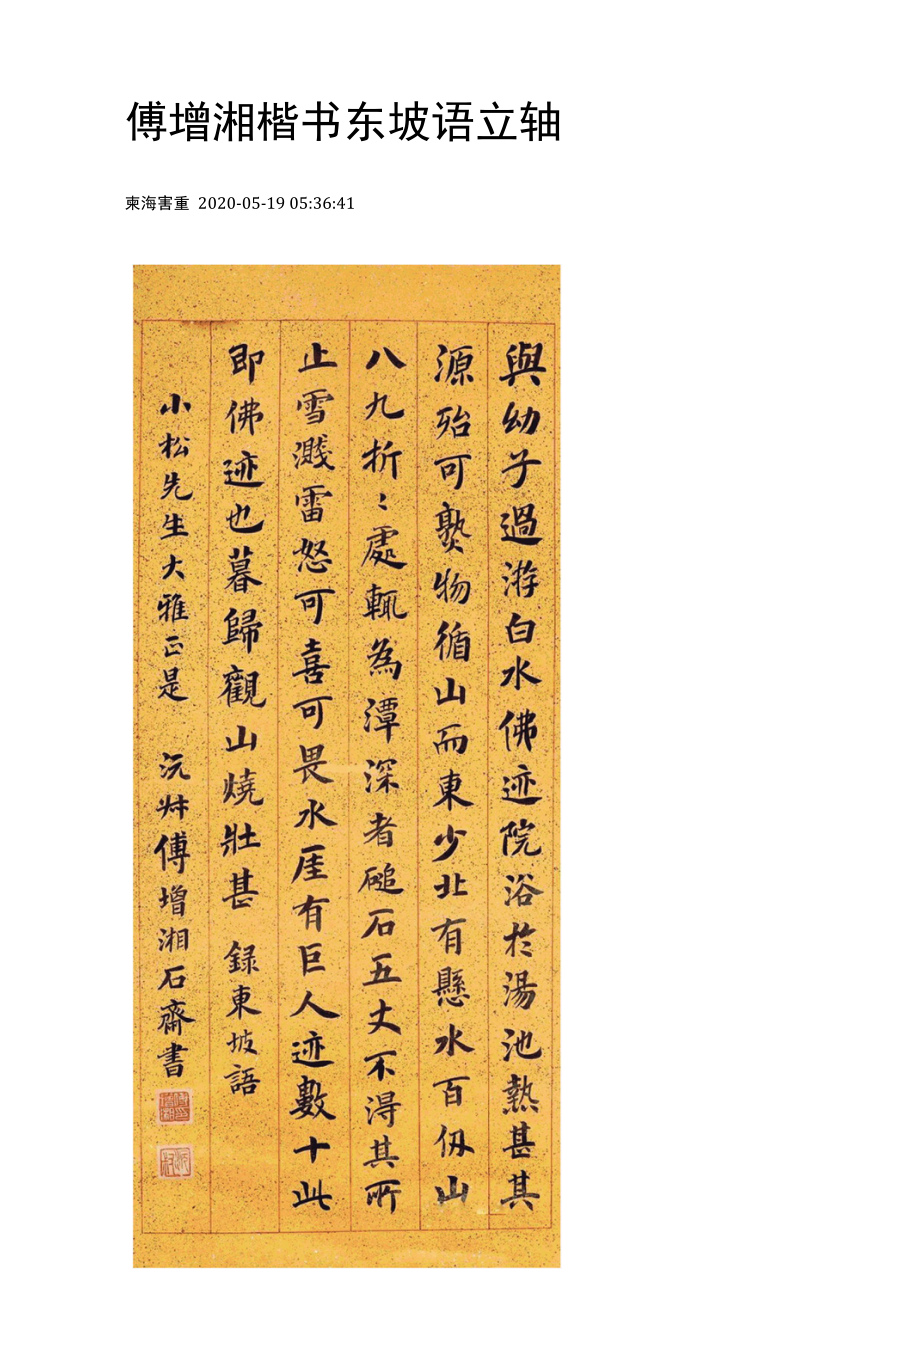 傅增湘楷书东坡语立轴
柬海害重 2020-05-19 05:36:41
與幼子過游白水佛迹院浴於湯池熱甚其
源殆可熟物循山而東少北有懸水百仞山
八九折〻處輒為潭深者磓石五丈不得其所
止雪濺雷怒可喜可畏水厓有巨人迹數十此
即佛迹也暮歸觀山燒壯甚 録東坡語
小松先生大雅正是 沅尗傅增湘石齋書